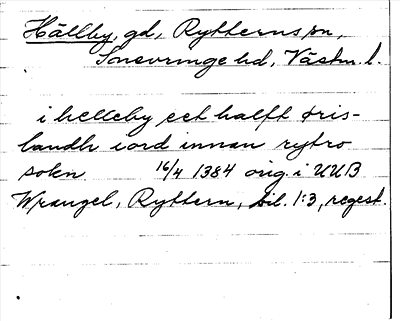 Hällby, gd, Rytterns sn,
Snevringe hd, Västm. l.
i helleby eet halfft öris-
landh iord innan rytro
sokn 16/4 1384 orig. i UUB
Wrangel, Ryttern, bil. 1:3, regest.